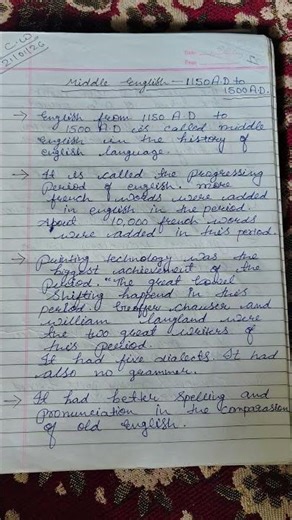 C.W
21/01/26
Middle English - 1150 A.D to
1500 A.D.
→ English from 1150 A.D to
1500 A.D is called middle
English in the history of
english language.
→ It is called the progressing
Period of english. more
french words were added
in english in the period.
About 10,000 french words
were added in this period.
→ Printing technology was the
biggest achievement of the
Period. "The great bowel
Shifting happend in this
period. Greoffer chauser and
william langland were
the two great writers of
this Period.
It had five dialects. It had
also no grammer.
→ It had better spelling and
Pronunciation in the comparasson
of old English.